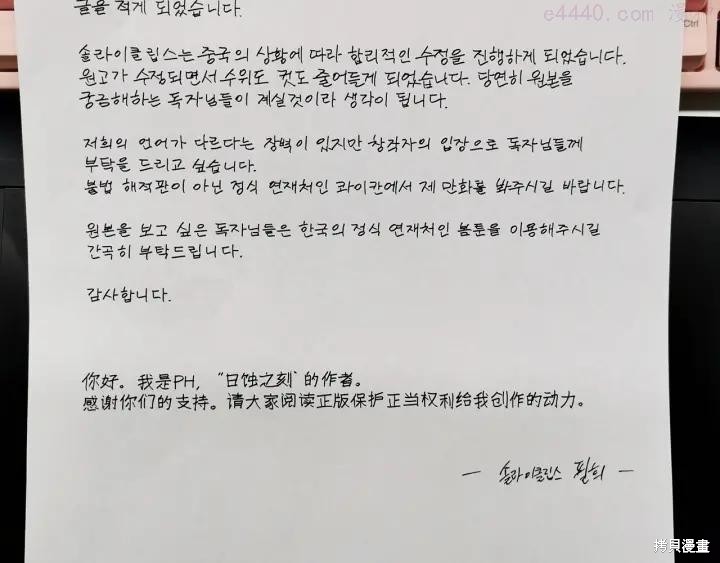 글을 적게 되었습니다.
e4440.com 漫
Ctrl
솔라이클립스는 중국의 상황에 따라 합리적인 수정을 진행하게 되었습니다.
원고가 수정되면서 수위도 컷도 줄어들게 되었습니다. 당연히 원본을
궁금해하는 독자님들이 계실것이라 생각이 됩니다.
저희의 언어가 다르다는 장벽이 있지만 창작자의 입장으로 독자님들께
부탁을 드리고 싶습니다.
불법 해적판이 아닌 정식 연재처인 콰이칸에서 제 만화를 봐주시길 바랍니다.
원본을 보고 싶은 독자님들은 한국의 정식 연재처인 봄툰을 이용해주시길
간곡히 부탁드립니다.
감사합니다.
你好。我是PH, “日蚀之刻”的作者。
感谢你们的支持。请大家阅读正版保护正当权利给我创作的动力。
— 솔라이클립스 필희 —
拷貝漫畫